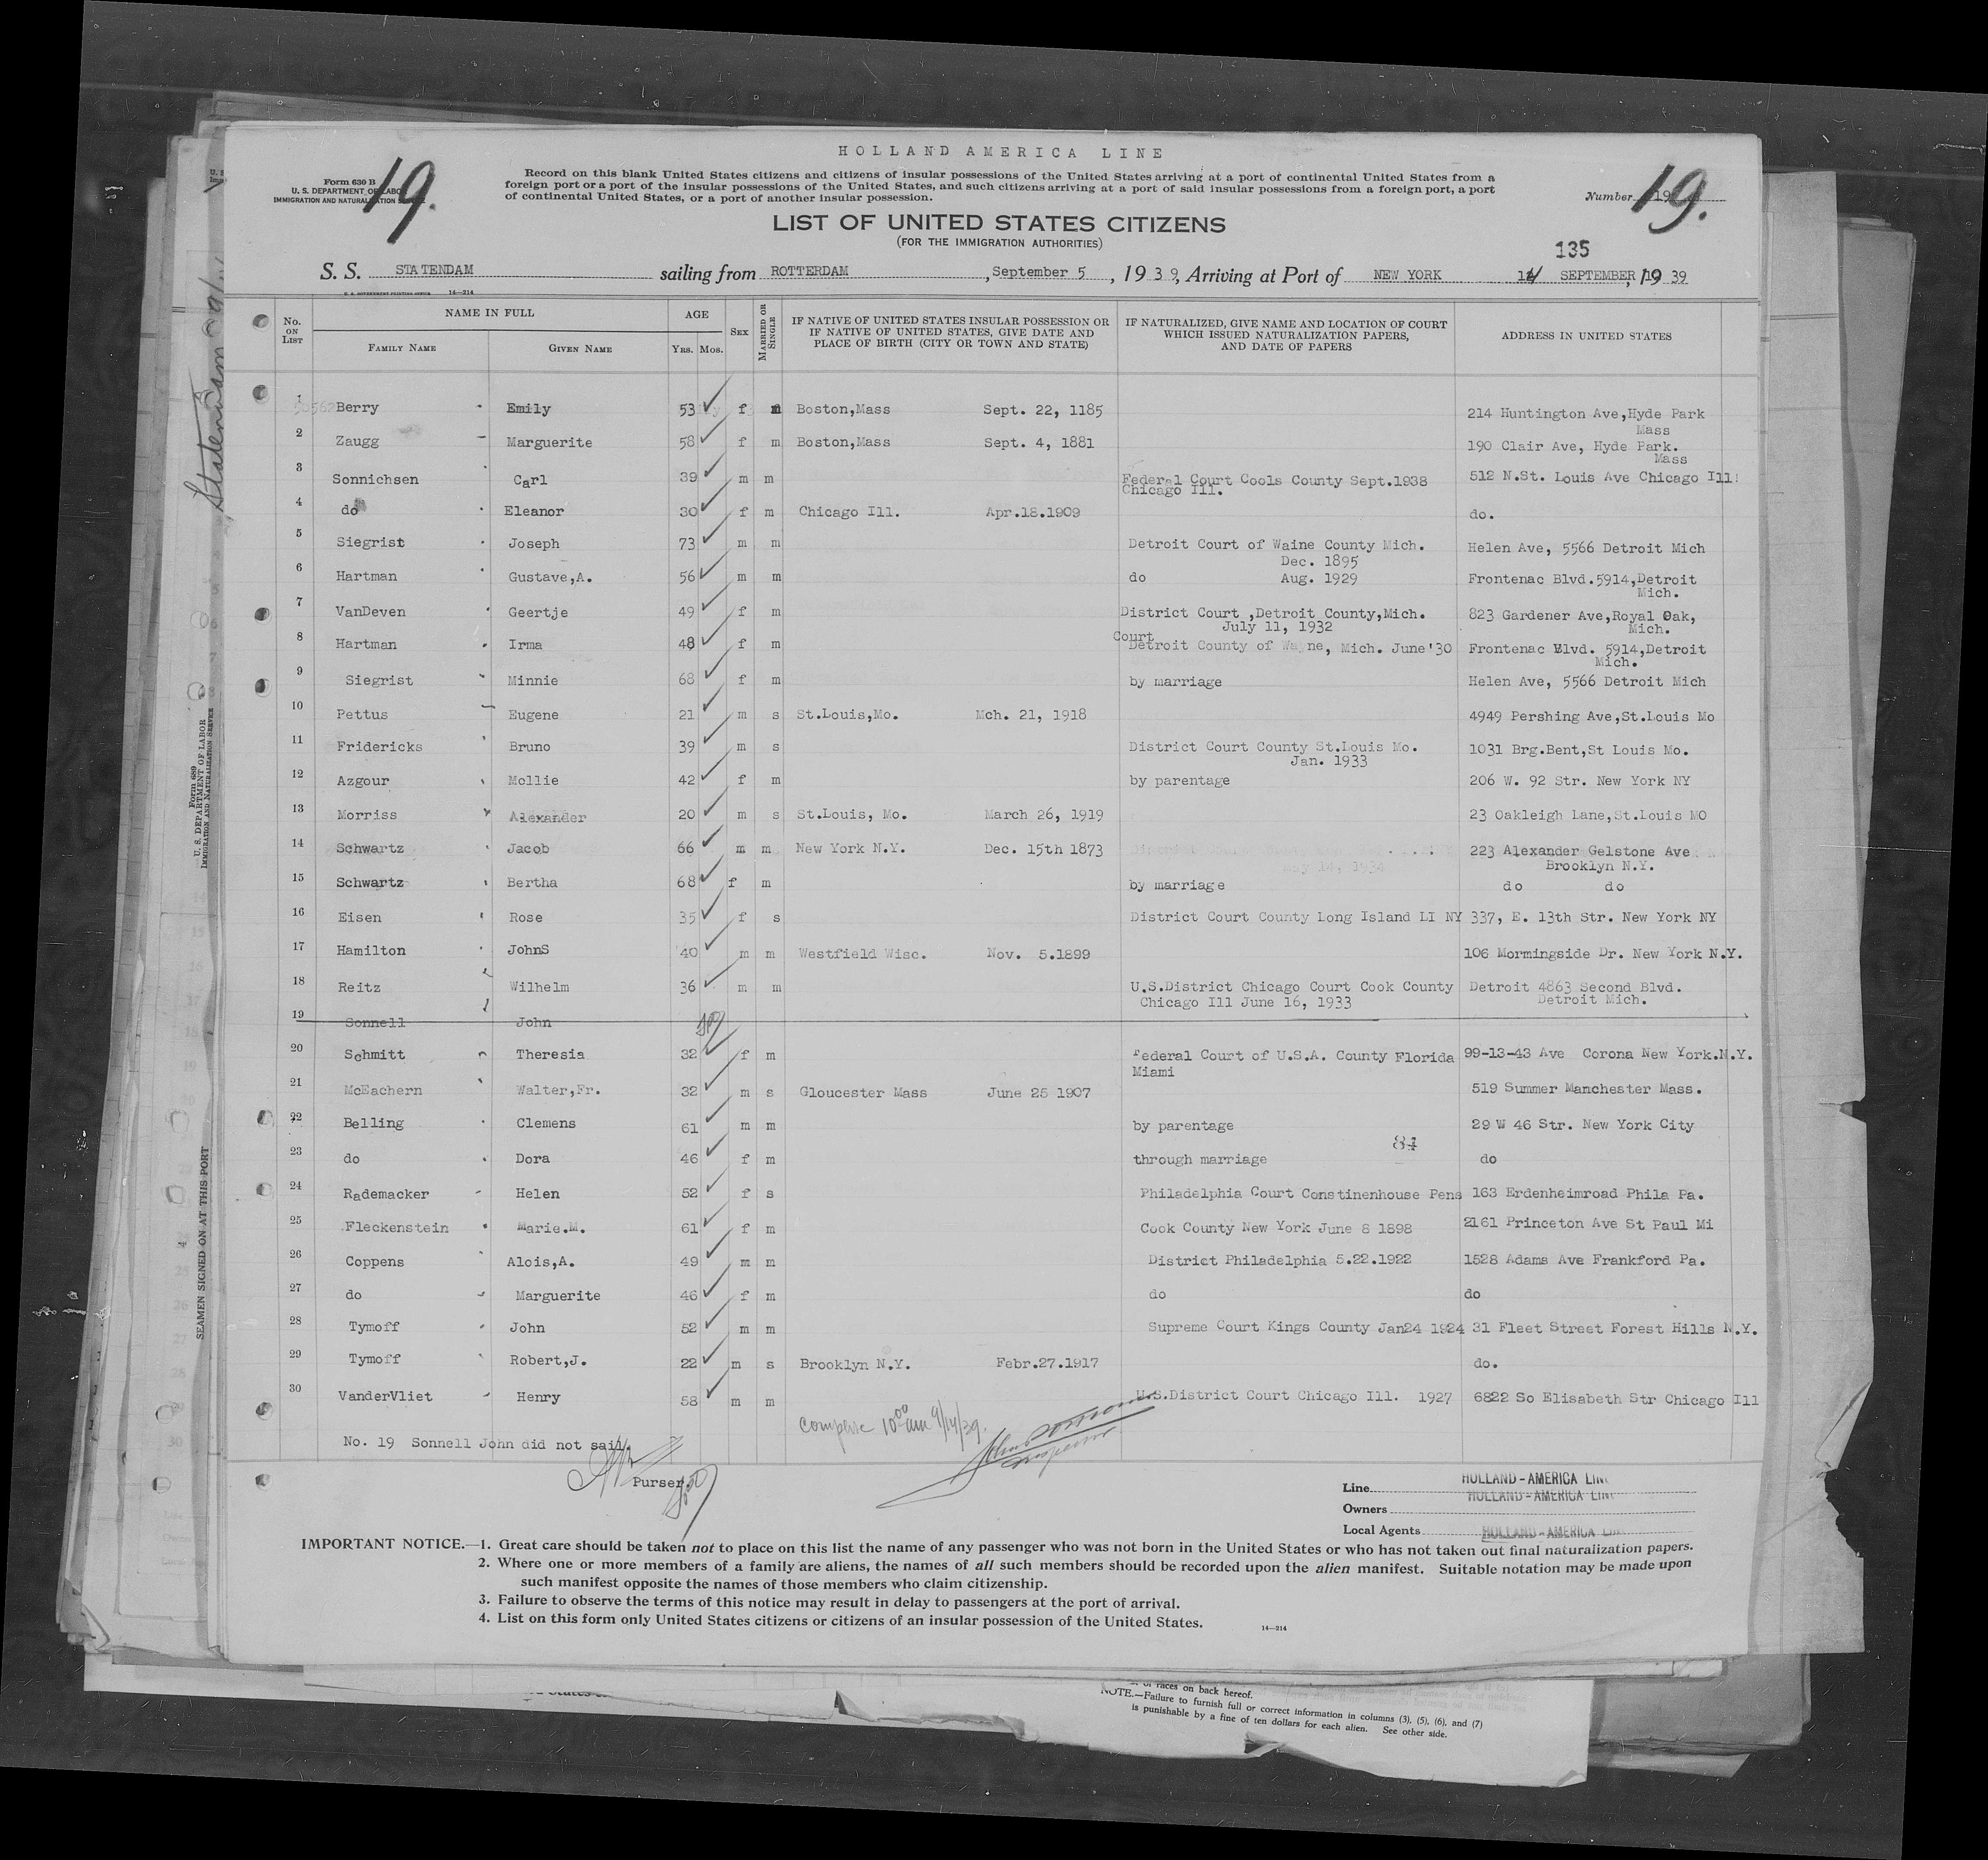 HOLLAND AMERICA LINE
Form 630 B
U. S. DEPARTMENT OF LABOR
IMMIGRATION AND NATURALIZATION SERVICE
19.
Record on this blank United States citizens and citizens of insular possessions of the United States arriving at a port of continental United States from a
foreign port or a port of the insular possessions of the United States, and such citizens arriving at a port of said insular possessions from a foreign port, a port
of continental United States, or a port of another insular possession.
Number 19
19.
LIST OF UNITED STATES CITIZENS
(FOR THE IMMIGRATION AUTHORITIES)
135
S. S. STATENDAM sailing from ROTTERDAM, September 5, 1939, Arriving at Port of NEW YORK 14 SEPTEMBER, 1939
U. S. GOVERNMENT PRINTING OFFICE 14—214
No. ON LIST
NAME IN FULL
FAMILY NAME GIVEN NAME
AGE
YRS. MOS.
SEX
MARRIED OR SINGLE
IF NATIVE OF UNITED STATES INSULAR POSSESSION OR
IF NATIVE OF UNITED STATES, GIVE DATE AND
PLACE OF BIRTH (CITY OR TOWN AND STATE)
IF NATURALIZED, GIVE NAME AND LOCATION OF COURT
WHICH ISSUED NATURALIZATION PAPERS,
AND DATE OF PAPERS
ADDRESS IN UNITED STATES
1 Berry Emily 53 f m Boston,Mass Sept. 22, 1185 214 Huntington Ave,Hyde Park
Mass
2 Zaugg Marguerite 58 f m Boston,Mass Sept. 4, 1881 190 Clair Ave, Hyde Park.
Mass
3 Sonnichsen Carl 39 m m Federal Court Cools County Sept.1938 512 N.St. Louis Ave Chicago Ill
Chicago Ill.
4 do Eleanor 30 f m Chicago Ill. Apr.18.1909 do.
5 Siegrist Joseph 73 m m Detroit Court of Waine County Mich. Helen Ave, 5566 Detroit Mich
Dec. 1895
6 Hartman Gustave,A. 56 m m do Aug. 1929 Frontenac Blvd.5914,Detroit
Mich.
7 VanDeven Geertje 49 f m District Court ,Detroit County,Mich. 823 Gardener Ave,Royal Oak,
July 11, 1932 Mich.
8 Hartman Irma 48 f m Court Detroit County of Wayne, Mich. June'30 Frontenac Blvd. 5914,Detroit
Mich.
9 Siegrist Minnie 68 f m by marriage Helen Ave, 5566 Detroit Mich
10 Pettus Eugene 21 m s St.Louis,Mo. Mch. 21, 1918 4949 Pershing Ave,St.Louis Mo
11 Fridericks Bruno 39 m s District Court County St.Louis Mo. 1031 Brg.Bent,St Louis Mo.
Jan. 1933
12 Azgour Mollie 42 f m by parentage 206 W. 92 Str. New York NY
13 Morriss Alexander 20 m s St.Louis, Mo. March 26, 1919 23 Oakleigh Lane,St.Louis MO
14 Schwartz Jacob 66 m m New York N.Y. Dec. 15th 1873 223 Alexander Gelstone Ave
May 14, 1934 Brooklyn N.Y.
15 Schwartz Bertha 68 f m by marriage do do
16 Eisen Rose 35 f s District Court County Long Island LI NY 337, E. 13th Str. New York NY
17 Hamilton JohnS 40 m m Westfield Wisc. Nov. 5.1899 106 Mormingside Dr. New York N.Y.
18 Reitz Wilhelm 36 m m U.S.District Chicago Court Cook County Detroit 4863 Second Blvd.
Chicago Ill June 16, 1933 Detroit Mich.
19 Sonnell John
20 Schmitt Theresia 32 f m Federal Court of U.S.A. County Florida 99-13-43 Ave Corona New York.N.Y.
Miami
21 McEachern Walter,Fr. 32 m s Gloucester Mass June 25 1907 519 Summer Manchester Mass.
22 Belling Clemens 61 m m by parentage 29 W 46 Str. New York City
23 do Dora 46 f m through marriage do
24 Rademacker Helen 52 f s Philadelphia Court Constinenhouse Pens 163 Erdenheimroad Phila Pa.
25 Fleckenstein Marie.M. 61 f m Cook County New York June 8 1898 2161 Princeton Ave St Paul Mi
26 Coppens Alois,A. 49 m m District Philadelphia 5.22.1922 1528 Adams Ave Frankford Pa.
27 do Marguerite 46 f m do do
28 Tymoff John 52 m m Supreme Court Kings County Jan24 1924 31 Fleet Street Forest Hills N.Y.
29 Tymoff Robert,J. 22 m s Brooklyn N.Y. Febr.27.1917 do.
30 VanderVliet Henry 58 m m U.S.District Court Chicago Ill. 1927 6822 So Elisabeth Str Chicago Ill
10 00 am 9/14/39.
No. 19 Sonnell John did not sail.
Purser.
Line HOLLAND-AMERICA LINE
HOLLAND-AMERICA LINE
Owners
Local Agents HOLLAND-AMERICA LINE
IMPORTANT NOTICE.—1. Great care should be taken not to place on this list the name of any passenger who was not born in the United States or who has not taken out final naturalization papers.
2. Where one or more members of a family are aliens, the names of all such members should be recorded upon the alien manifest. Suitable notation may be made upon
such manifest opposite the names of those members who claim citizenship.
3. Failure to observe the terms of this notice may result in delay to passengers at the port of arrival.
4. List on this form only United States citizens or citizens of an insular possession of the United States.
14—214
Statendam
Form 689
U. S. DEPARTMENT OF LABOR
IMMIGRATION AND NATURALIZATION SERVICE
SEAMEN SIGNED ON AT THIS PORT
of races on back hereof.
NOTE.—Failure to furnish full or correct information in columns (3), (5), (6), and (7)
is punishable by a fine of ten dollars for each alien. See other side.